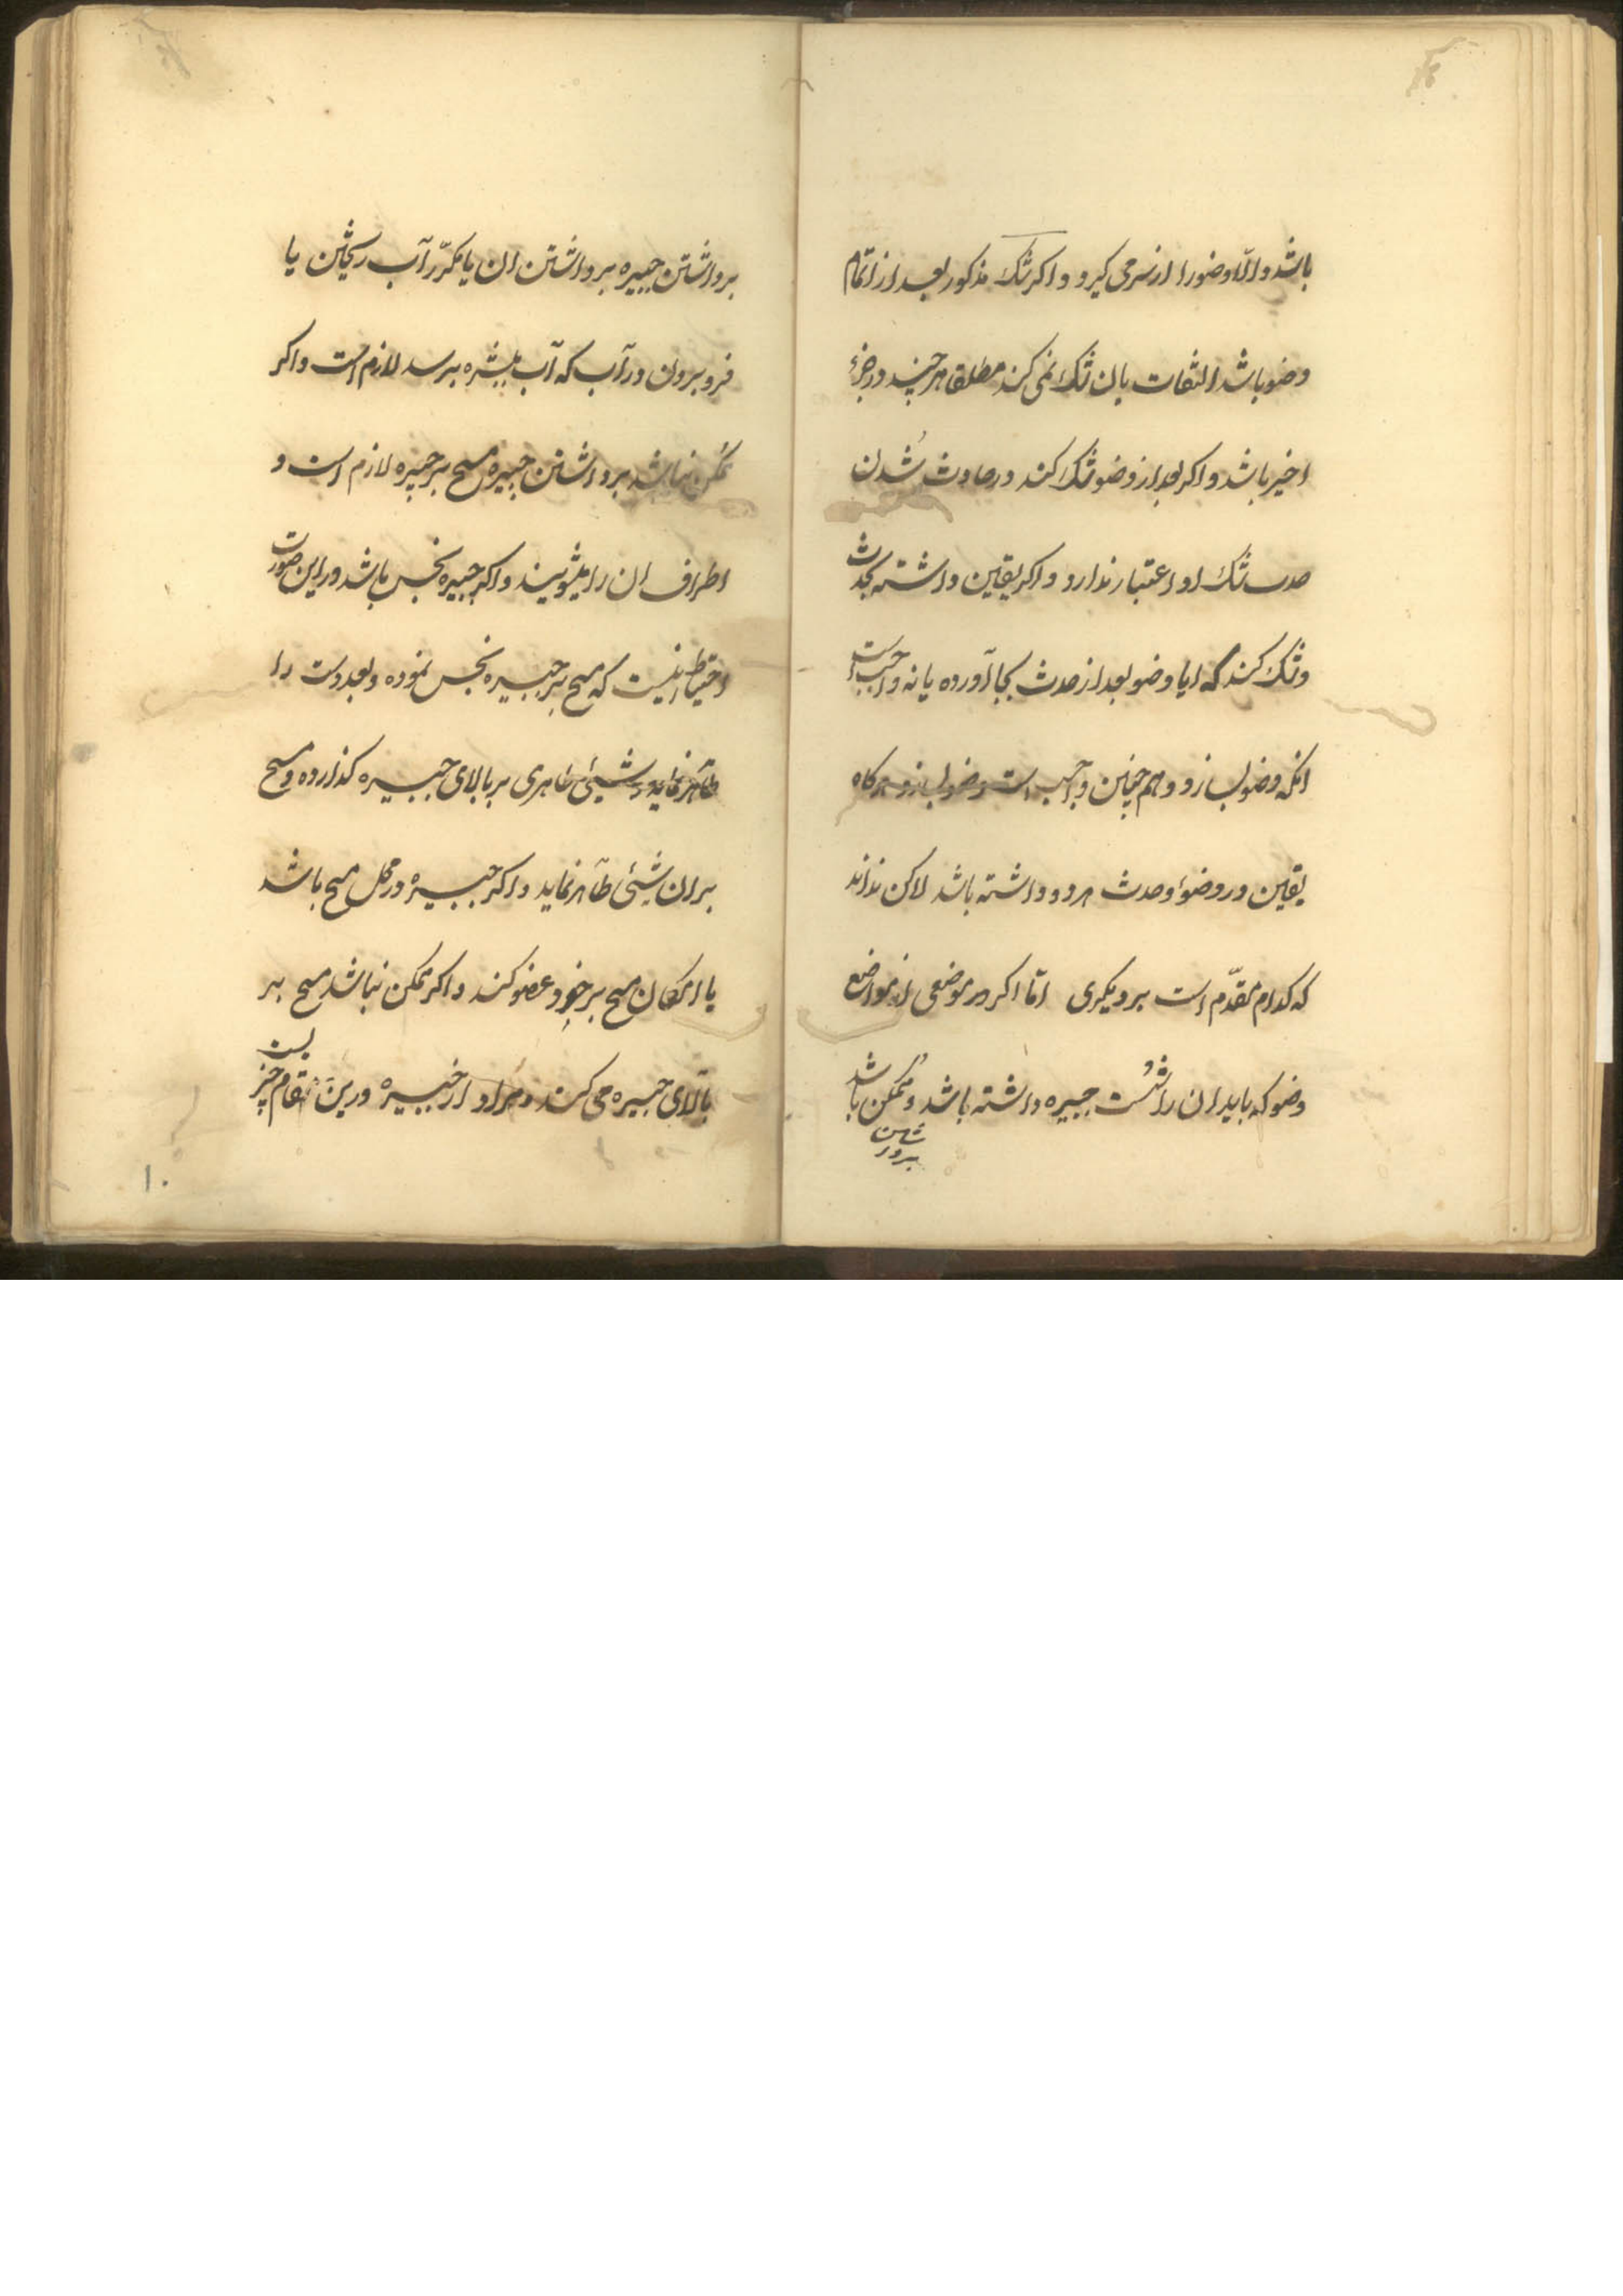 باشد والّا وضو را از سر می کیرد و اکر شک مذکور بعد از اتمام
وضو باشد التفات بان شک نمی کند مطلقا هر چند در جزء
اخیر باشد و اکر بعد از وضو شک کند در حادث شُدن
حدث شک او اعتبار ندارد و اکر یقین داشته بحدث
و شک کند که ایا وضو بعد از حدث بجا آورده یا نه واجب است
انکه وضو بسازد و هم چنین واجب است وضو بسازد هرکاه
یقین در وضو و حدث هر دو داشته باشد لاکن نداند
که کدام مقدّم است بر دیکری امّا اکر در موضعی از مواضع
وضو که باید ان را شُست جبیره داشته باشد و ممکن باشد
برداشتن جبیره برداشتن ان یا مکرّر آب ریختن یا
فرو بردن در آب که آب ببشره برسد لازم است و اکر
ممکن نباشد برداشتن جبیره مسح بر جبیره لازم است و
اطراف ان را میشویند و اکر جبیره نجس باشد در این صورت
احتیاط اینست که مسح بر جبیره نجس نموده و بعد دست را
طاهر نماید و شیئی طاهری بر بالای جبیره کذارده و مسح
بر ان شیئی طاهر نماید و اکر جبیره در محل مسح باشد
با امکان مسح بر خود عضو کند و اکر ممکن نباشد مسح بر
بالای جبیره می کند و مراد از جبیره درین مقام چیز
۱۰